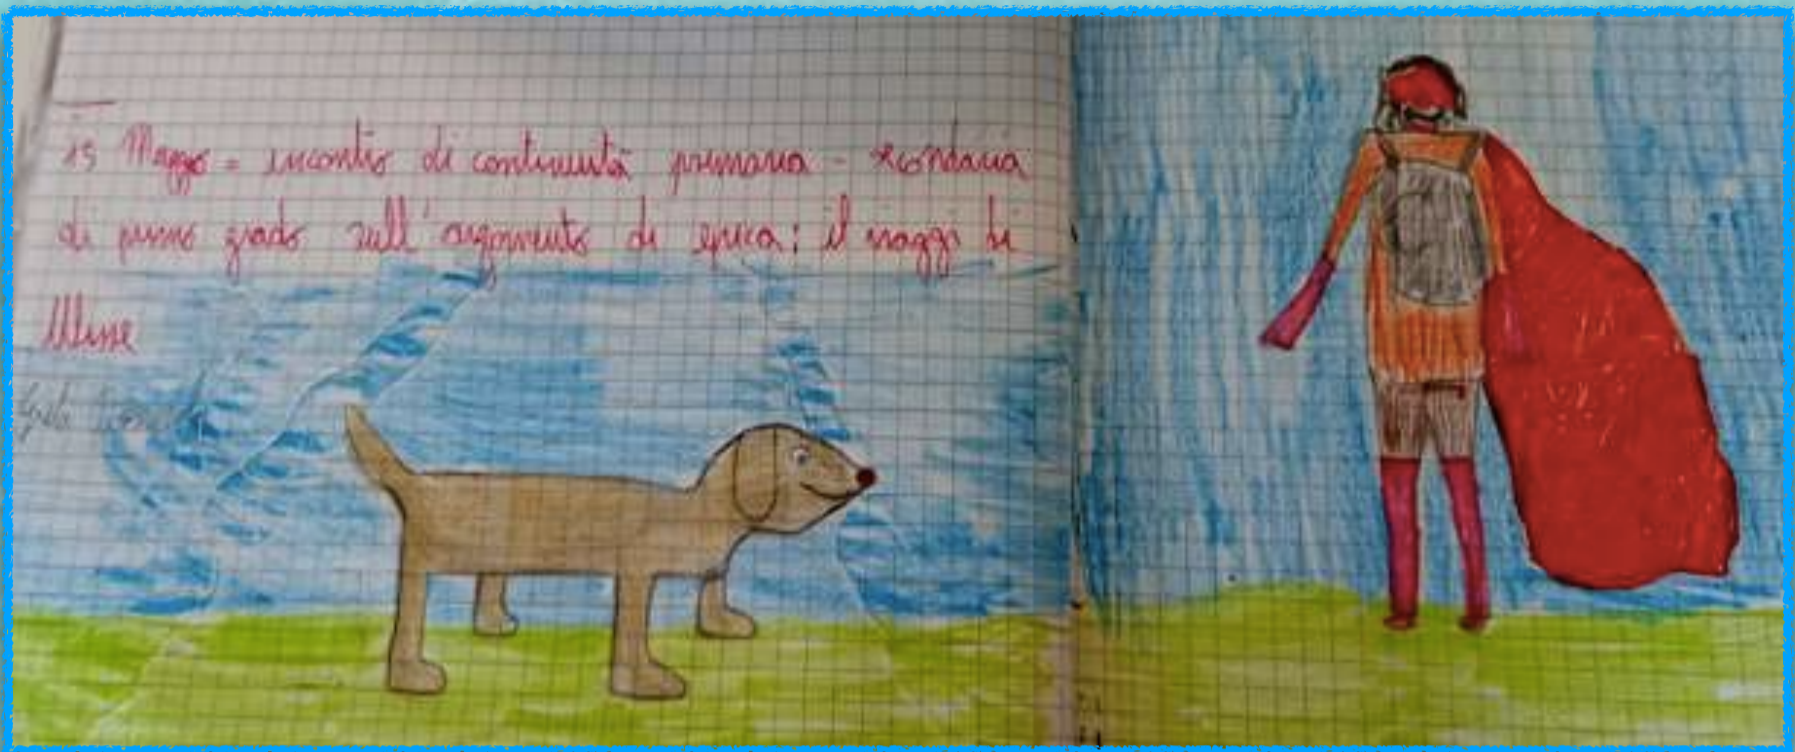 15 Maggio = incontro di continuità primaria - secondaria
di primo grado sull'argomento di epica: il viaggi di
Ulisse